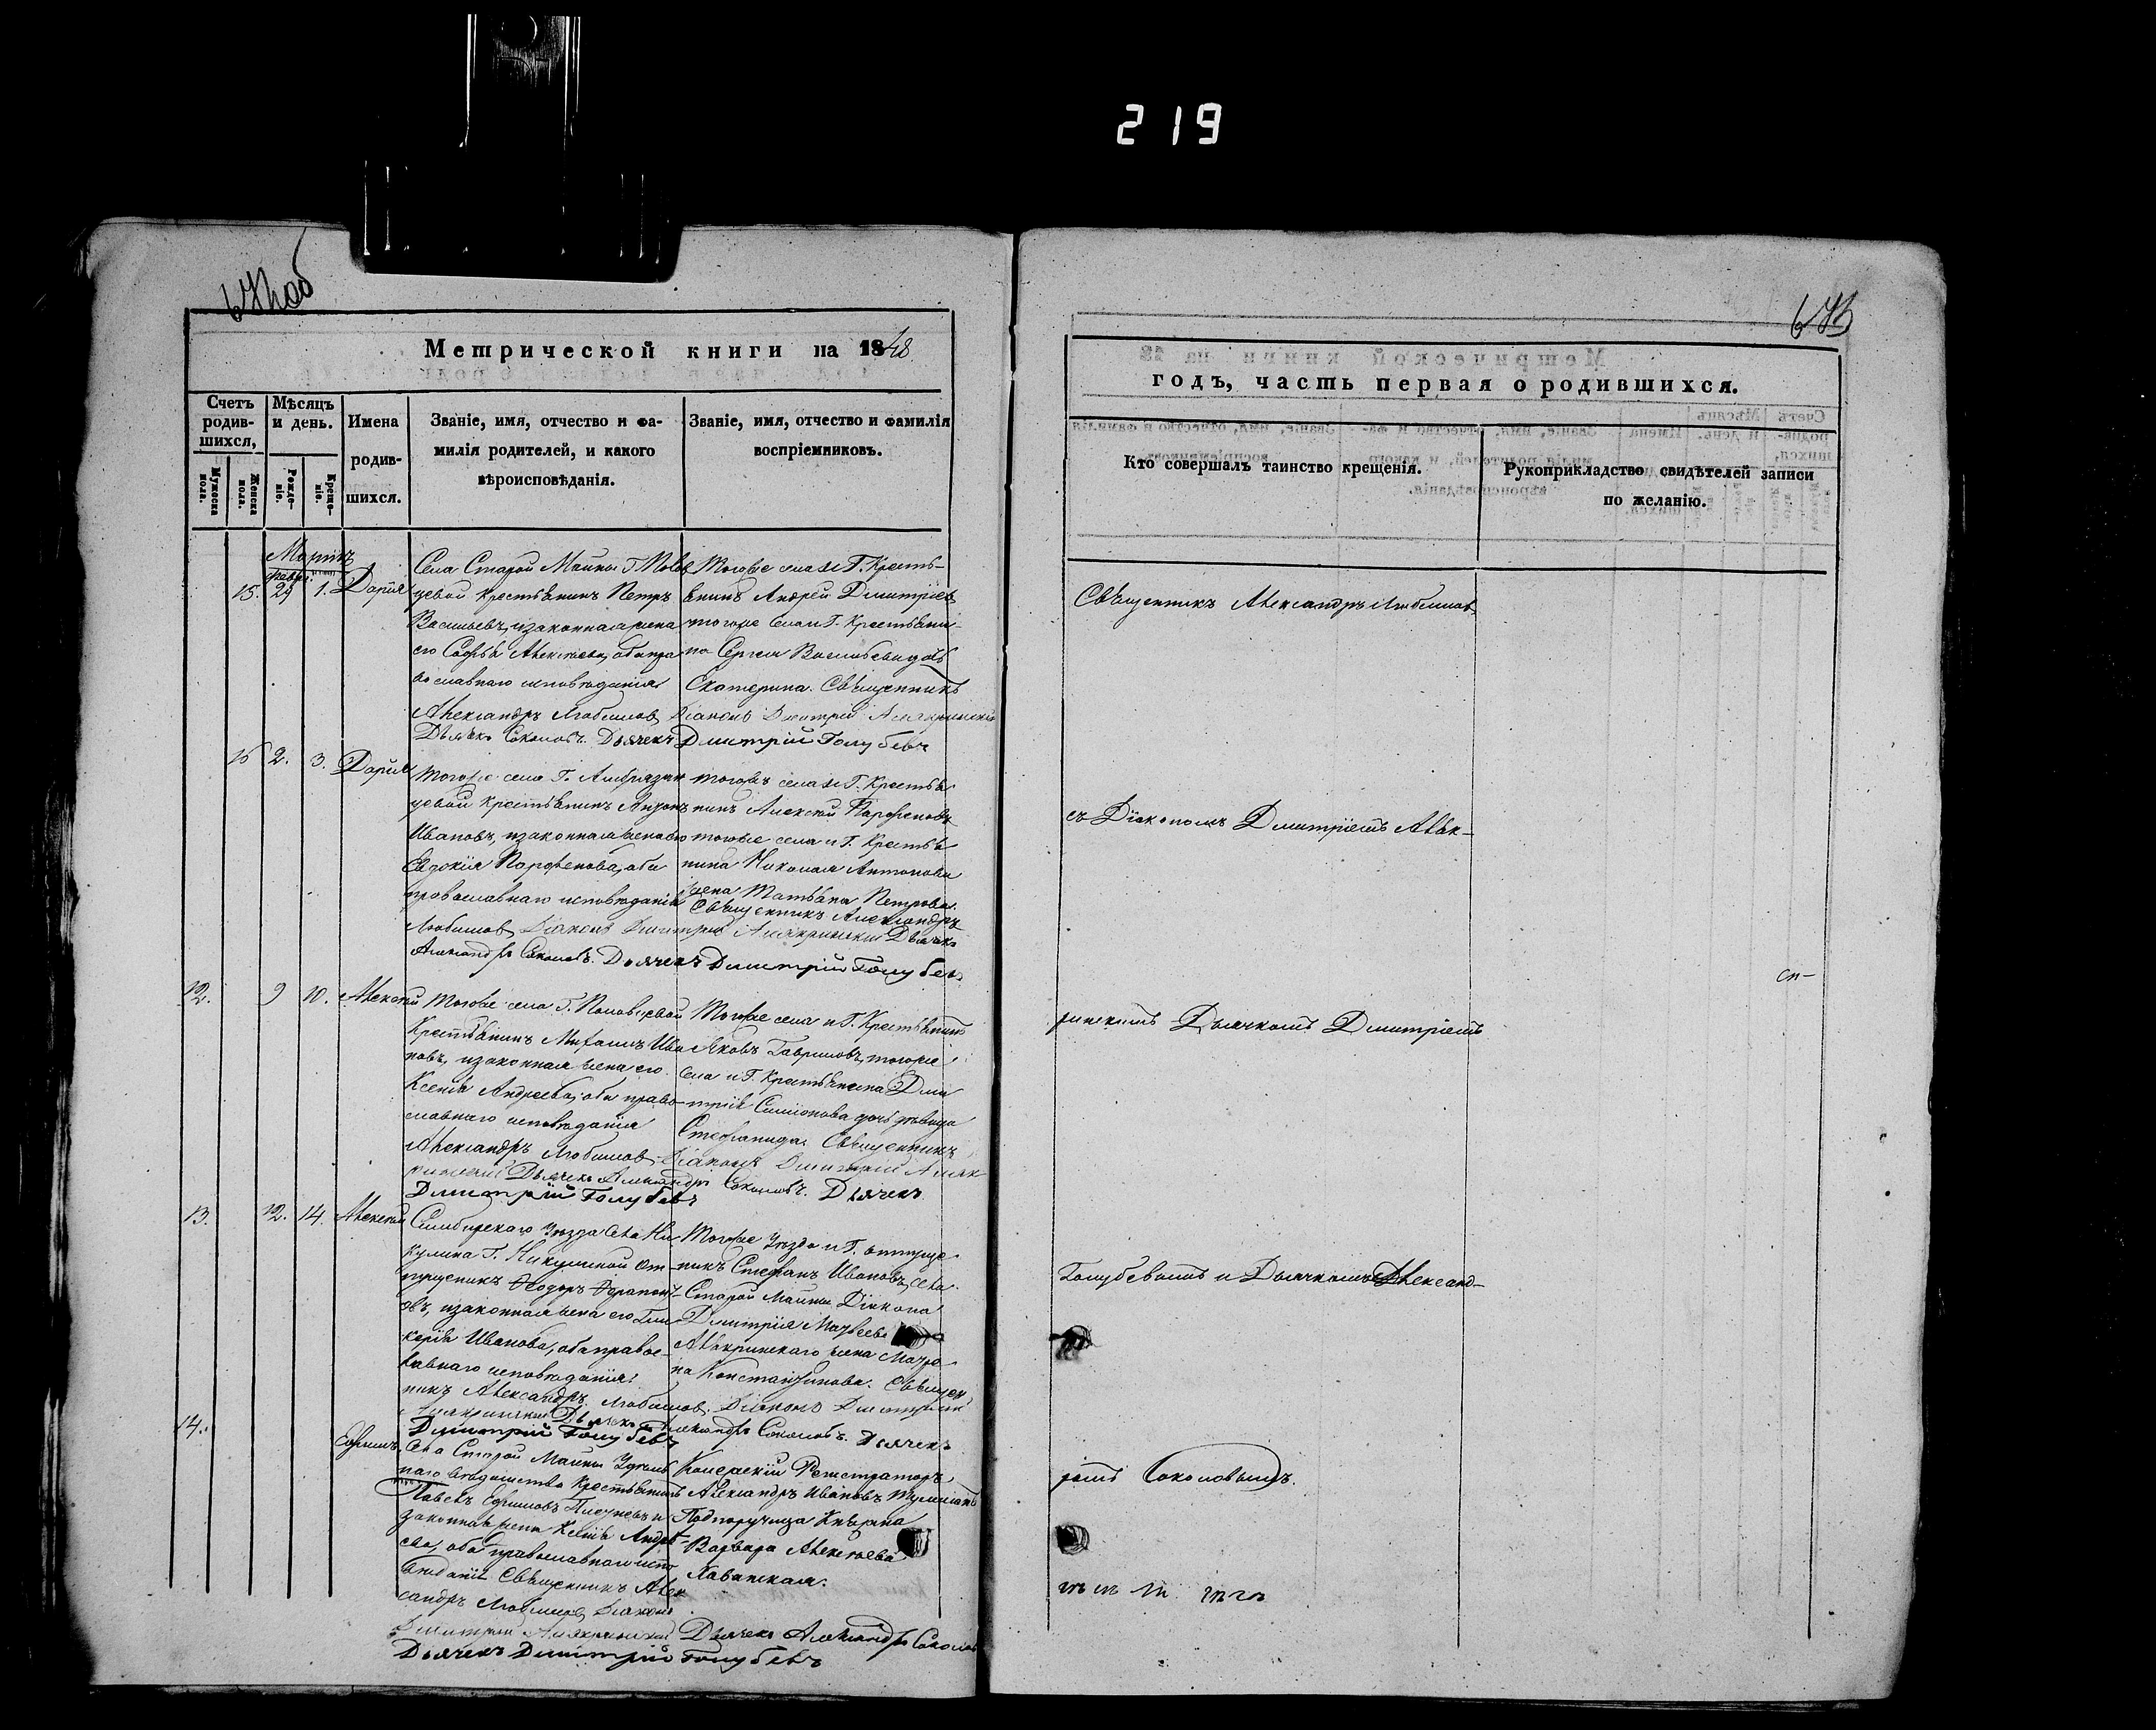 219
Метрической книги на 1848
Счетъ родив-шихся,
Мужеска пола.
Женска пола.
Мѣсяцъ и день.
Рожде-ніе.
Креще-ніе.
Имена родив-шихся.
Званіе, имя, отчество и фа-
милія родителей, и какого
вѣроисповѣданія.
Званіе, имя, отчество и фамилія
воспріемниковъ.
Мартъ
15. 29 1. Дарія
Села Старой Майны Г.
цевой крестьянинъ Петръ
Васильевъ, и законная жена
его Софья Алексѣева, оба пра
вославнаго исповѣданія
Тогоже села и Г. Кресть-
янинъ Андрей Дмитріевъ
тогоже села и Г. Крестьяни-
на Сергея Васильева дочь
Екатерина. Священникъ
Александръ Любимовъ Діаконъ Дмитрій
Дьячекъ Соколовъ. Дьячекъ Дмитрій Голубевъ
16 2. 3. Дарія
Тогоже села Г.
цевой крестьянинъ Антонъ
Ивановъ, и законная жена его
Евдокія Парфенова, оба
православнаго исповѣданія
тогожъ села и Г. Крестья
нинъ Алексѣй Парфеновъ
тогоже села и Г. Крестья
нина Николая Антонова
жена Татьяна Петрова.
Священникъ Александръ
Любимовъ Діаконъ Дмитрій Дьячекъ
Александръ Соколовъ. Дьячекъ Дмитрій Голубевъ
12. 9 10. Алексѣй
Тогоже села Г.
Крестьянинъ Ива
новъ, и законная жена его
Ксенія Андреева, оба право-
славнаго исповѣданія
Тогоже села и Г. Крестьянинъ
Яковъ Гавриловъ, тогоже
села и Г. Крестьянина Дми
трія Симіонова дочь дѣвица
Стефанида. Священникъ
Александръ Любимовъ Діаконъ Дмитрій
Дьячекъ Александръ Соколовъ. Дьячекъ
Дмитрій Голубевъ
13. 12. 14. Алексѣй
Симбирскаго Уѣзда Села Ни
кулина Г. Никулиной от-
пущеникъ Ѳеодоръ
овъ, и законная жена его Гли
керія Иванова, оба правос-
лавнаго исповѣданія.
Тогоже Уѣзда и Г. отпуще-
никъ Стефанъ Ивановъ, села
Старой Майны Діакона
Дмитрія Матвеева
жена Матро-
на Константинова. Священ
никъ Александръ Любимовъ. Діаконъ Дмитрій
Дьячекъ Александръ Соколовъ. Дьячекъ
Дмитрій Голубевъ
14. Ефимъ
Села Старой Майны Удѣль
наго вѣдомства крестьянинъ
Павелъ Ефимовъ и
законная жена Ксенія Андре-
ева, оба православнаго испо
вѣданія Священникъ Алек
сандръ Любимовъ Діаконъ
Колежскій Регистраторъ
Александръ Ивановъ
Подпоручица Княжна
Варвара Алексѣева
Дмитрій Дьячекъ Александръ Соколовъ
Дьячекъ Дмитрій Голубевъ
годъ, часть первая о родившихся.
Кто совершалъ таинство крещенія.
Рукоприкладство свидѣтелей записи
по желанію.
Священникъ Александръ Любимовъ
съ Діакономъ Дмитріемъ
Дьячкомъ Дмитріемъ
Голубевымъ и Дьячкомъ Александ-
ромъ Соколовымъ.